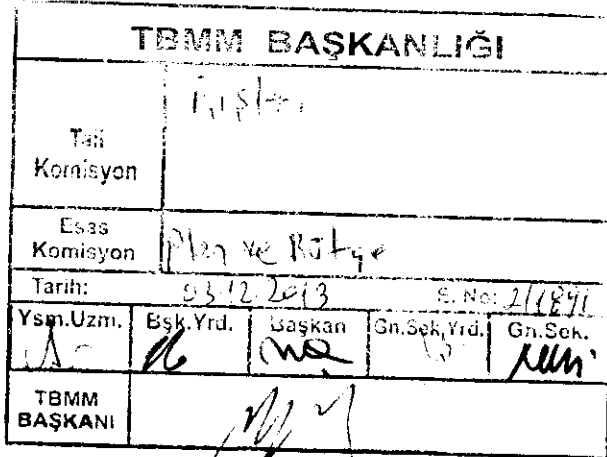 TBMM BAŞKANLIĞI
Tali
Komisyon
İçişleri
Esas
Komisyon
Plan ve Bütçe
Tarih: 03.12.2013 E. No: 2/1891
Ysm.Uzm. Bşk.Yrd. Başkan Gn.Sek.Yrd. Gn.Sek.
TBMM
BAŞKANI